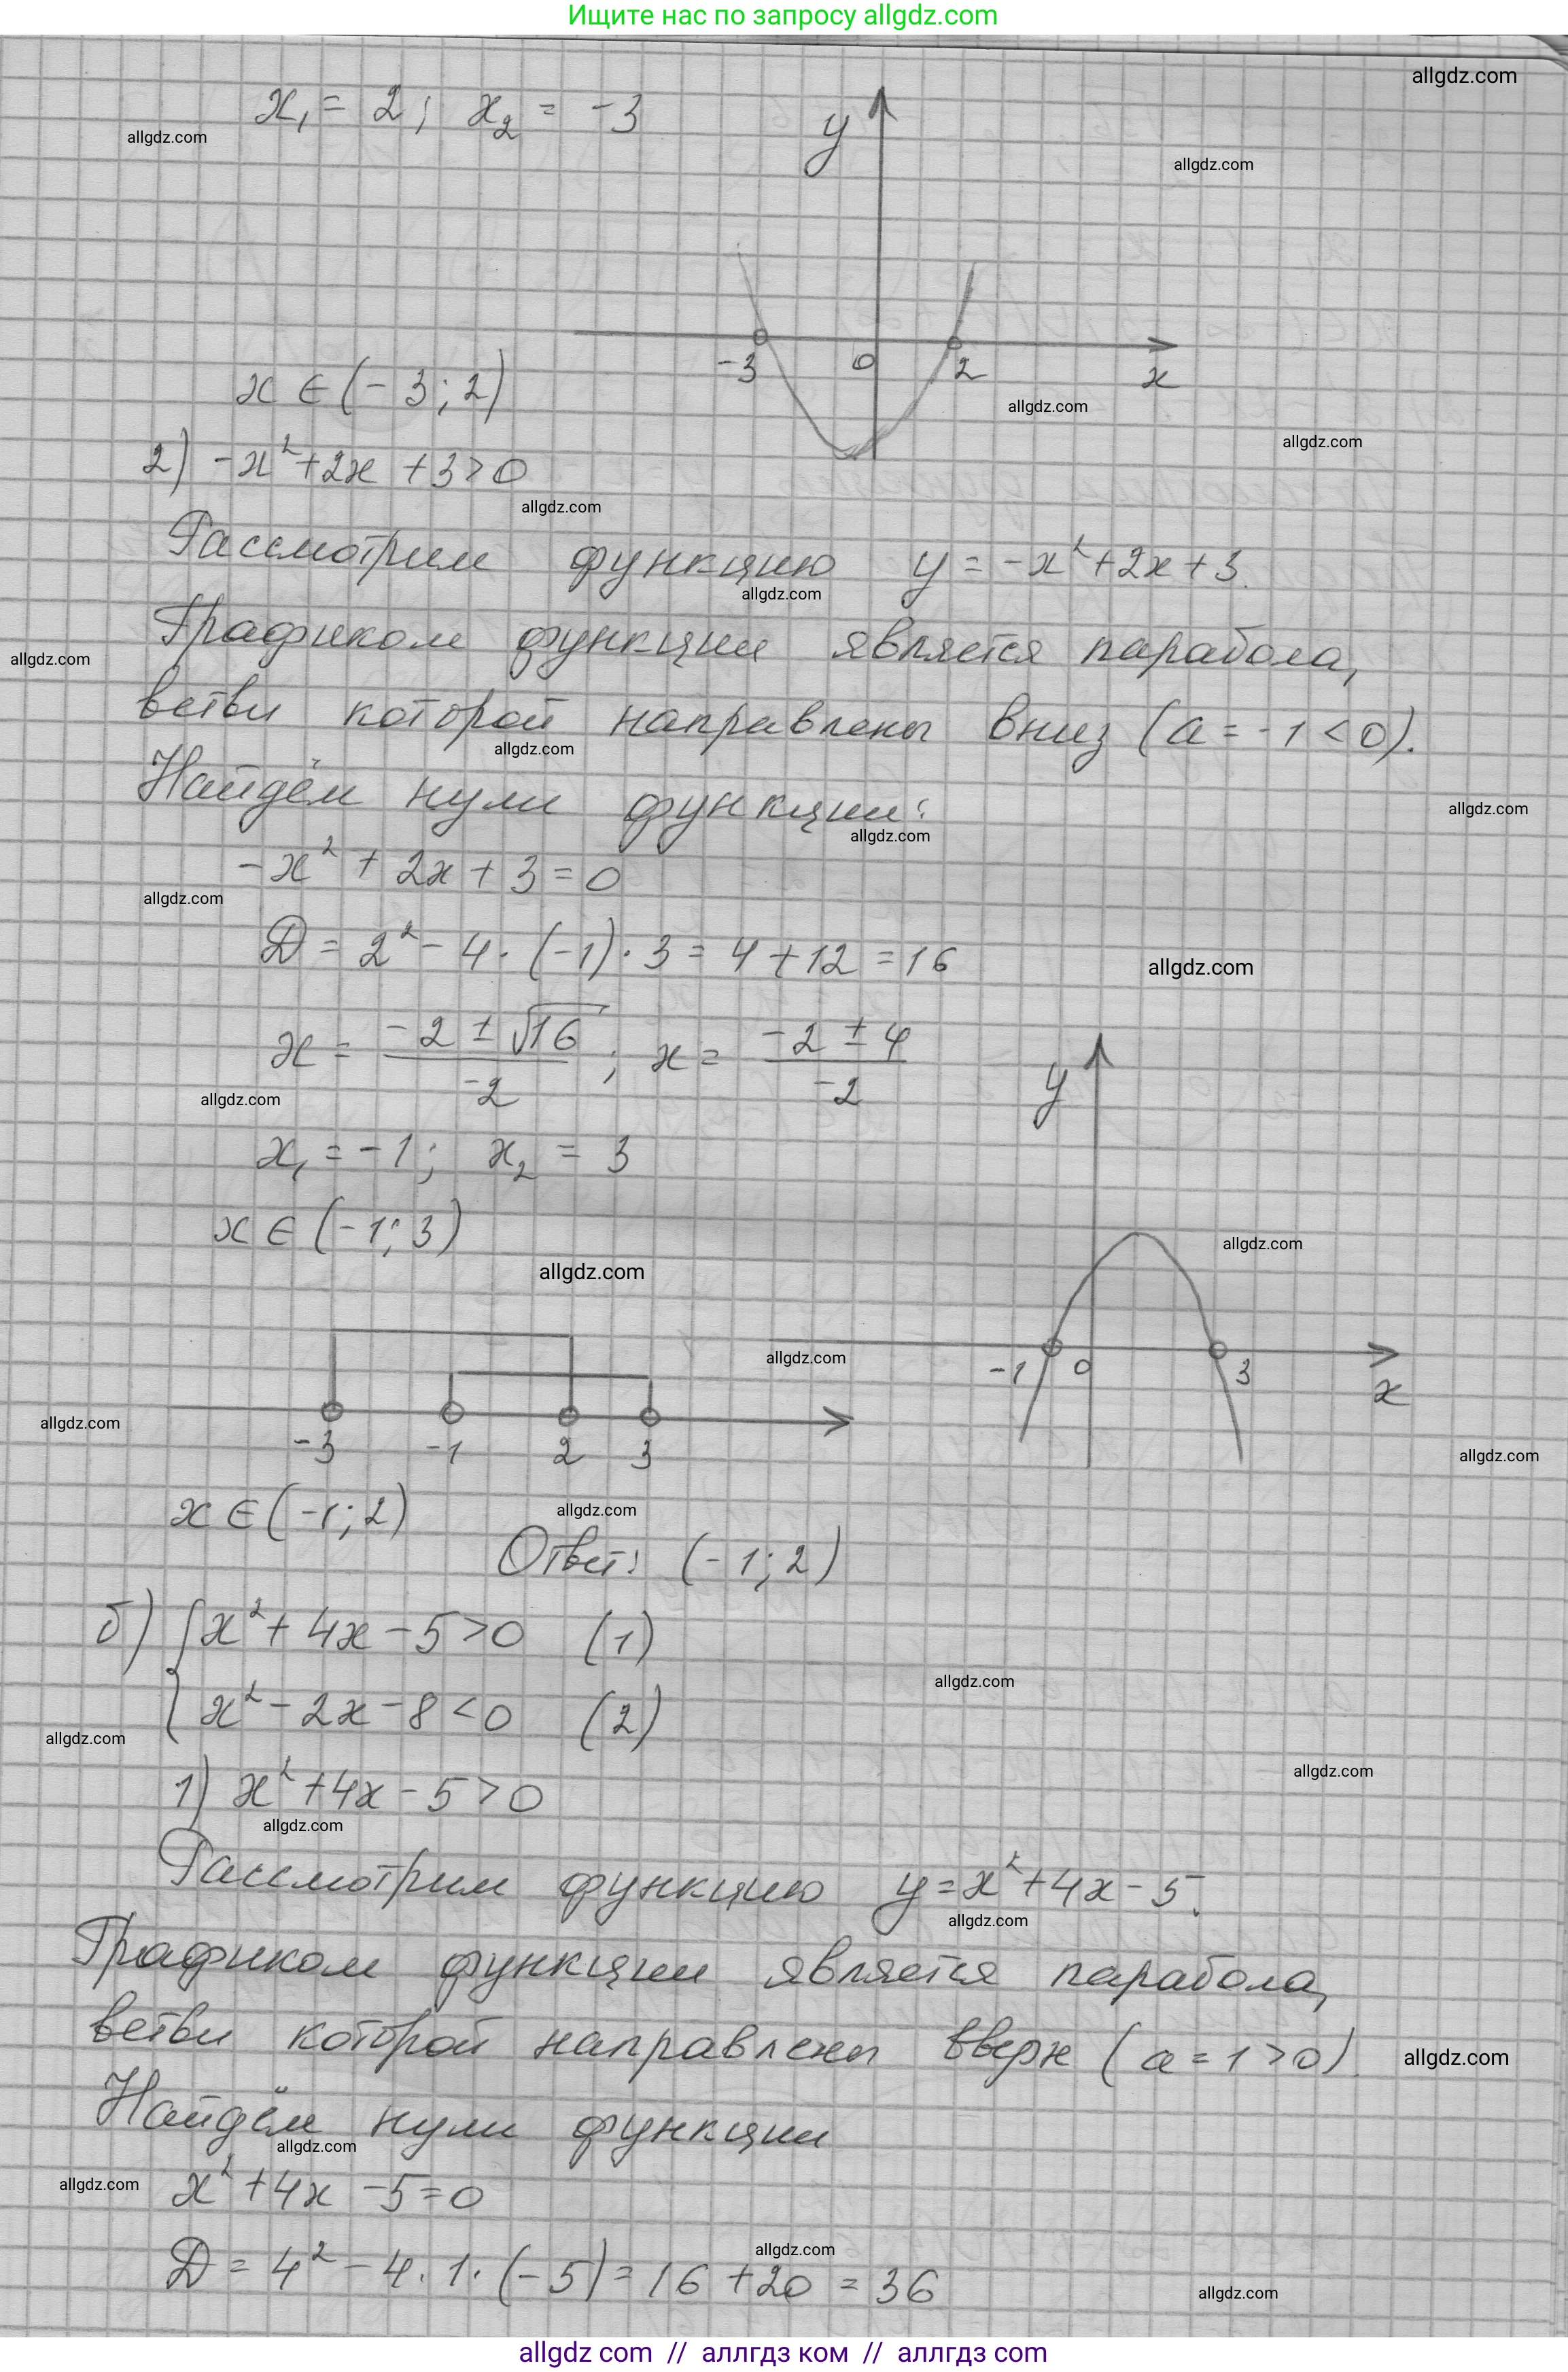 Ищите нас по запросу allgdz.com
allgdz.com
x₁ = 2; x₂ = -3
y
allgdz.com
allgdz.com
-3 0 2 x
x ∈ (-3; 2)
allgdz.com
allgdz.com
2) -x² + 2x + 3 > 0
allgdz.com
Рассмотрим функцию y = -x² + 2x + 3.
allgdz.com
Графиком функции является парабола,
allgdz.com
ветви которой направлены вниз (a = -1 < 0).
allgdz.com
Найдём нули функции:
allgdz.com
allgdz.com
-x² + 2x + 3 = 0
allgdz.com
D = 2² - 4 · (-1) · 3 = 4 + 12 = 16
allgdz.com
x = (-2 ± √16)/(-2); x = (-2 ± 4)/(-2)
y
allgdz.com
x₁ = -1; x₂ = 3
x ∈ (-1; 3)
allgdz.com
allgdz.com
allgdz.com
-1 0 3 x
allgdz.com
-3 -1 2 3
allgdz.com
x ∈ (-1; 2)
allgdz.com
Ответ: (-1; 2)
б) { x² + 4x - 5 > 0 (1)
allgdz.com
x² - 2x - 8 < 0 (2)
allgdz.com
allgdz.com
1) x² + 4x - 5 > 0
allgdz.com
Рассмотрим функцию y = x² + 4x - 5.
allgdz.com
Графиком функции является парабола,
ветви которой направлены вверх (a = 1 > 0).
allgdz.com
Найдём нули функции
allgdz.com
allgdz.com
x² + 4x - 5 = 0
allgdz.com
D = 4² - 4 · 1 · (-5) = 16 + 20 = 36
allgdz.com
allgdz com // аллгдз ком // аллгдз com